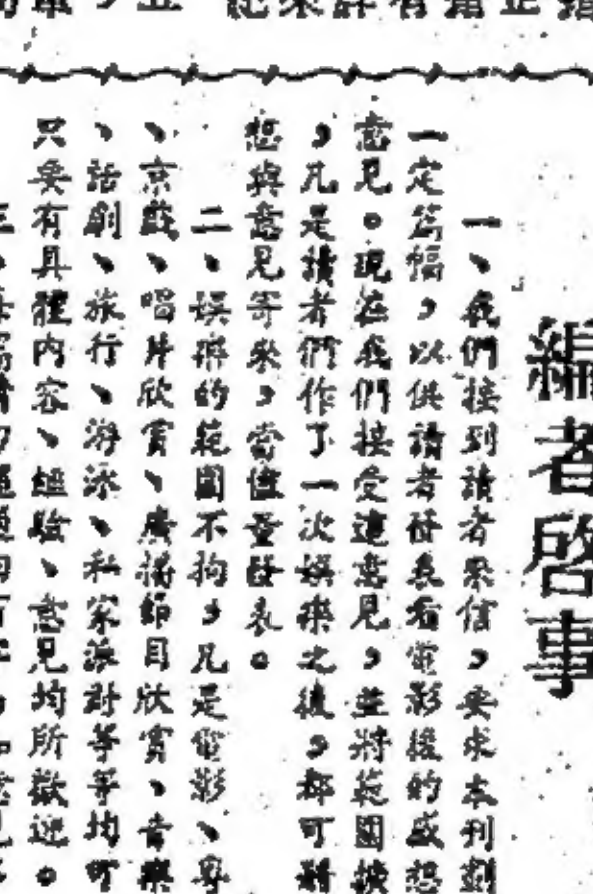 編者啓事
一、我們接到讀者來信，要求本刊劃
一定篇幅，以供讀者發表看電影後的感想
意見。現在我們接受這意見，並將範圍擴
，凡是讀者們作了一次娛樂之後，都可將
想與意見寄來，當儘量發表。
二、娛樂的範圍不拘，凡是電影、粵
、京戲、唱片欣賞、廣播節目欣賞、音樂
、話劇、旅行、游泳、私家派對等等均可
只要有具體內容、經驗、意見均所歡迎。